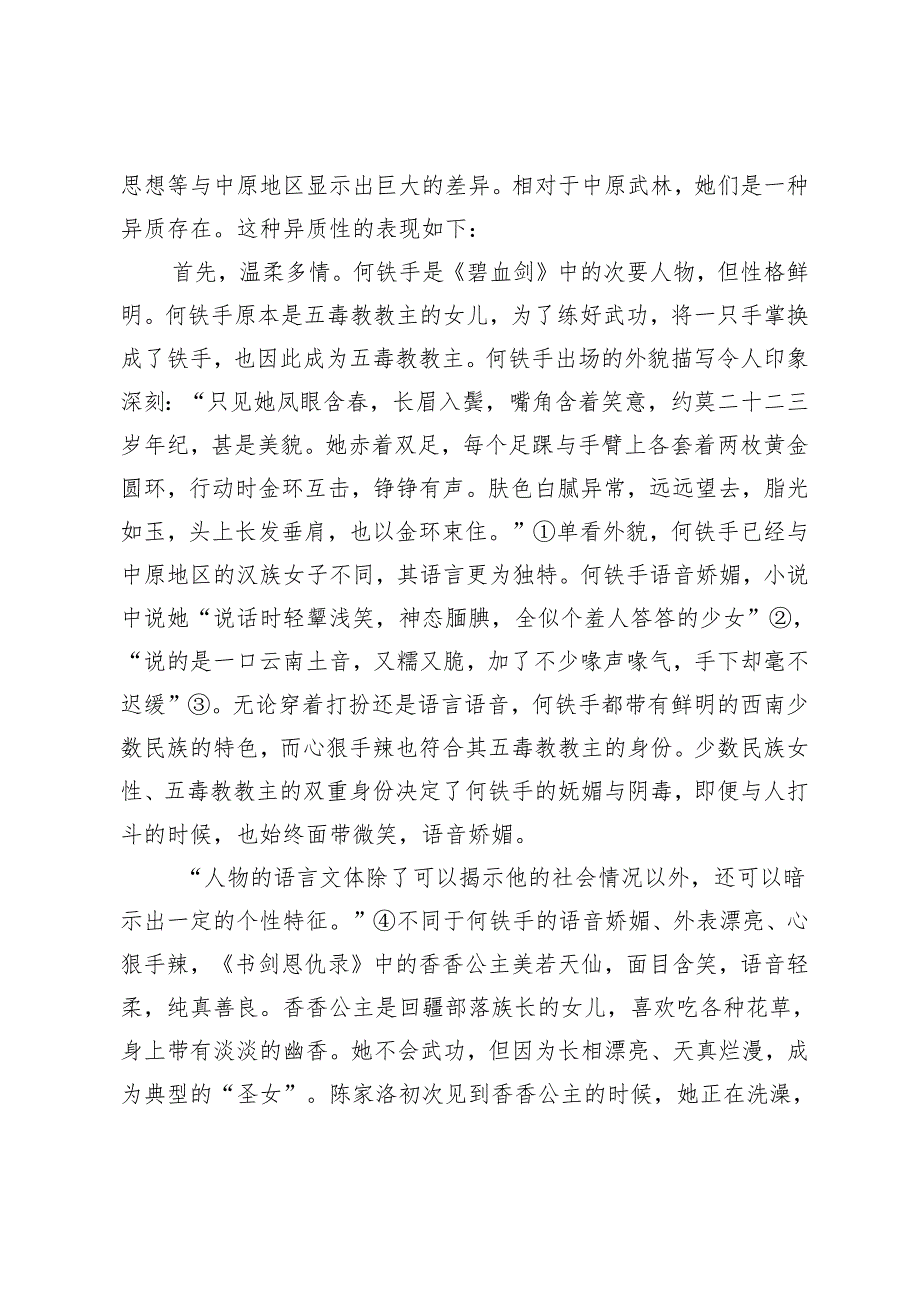 思想等与中原地区显示出巨大的差异。相对于中原武林，她们是一种
异质存在。这种异质性的表现如下：
首先，温柔多情。何铁手是《碧血剑》中的次要人物，但性格鲜
明。何铁手原本是五毒教教主的女儿，为了练好武功，将一只手掌换
成了铁手，也因此成为五毒教教主。何铁手出场的外貌描写令人印象
深刻：“只见她凤眼含春，长眉入鬓，嘴角含着笑意，约莫二十二三
岁年纪，甚是美貌。她赤着双足，每个足踝与手臂上各套着两枚黄金
圆环，行动时金环互击，铮铮有声。肤色白腻异常，远远望去，脂光
如玉，头上长发垂肩，也以金环束住。”①单看外貌，何铁手已经与
中原地区的汉族女子不同，其语言更为独特。何铁手语音娇媚，小说
中说她“说话时轻颦浅笑，神态腼腆，全似个羞人答答的少女”②，
“说的是一口云南土音，又糯又脆，加了不少喙声喙气，手下却毫不
迟缓”③。无论穿着打扮还是语言语音，何铁手都带有鲜明的西南少
数民族的特色，而心狠手辣也符合其五毒教教主的身份。少数民族女
性、五毒教教主的双重身份决定了何铁手的妩媚与阴毒，即便与人打
斗的时候，也始终面带微笑，语音娇媚。
“人物的语言文体除了可以揭示他的社会情况以外，还可以暗
示出一定的个性特征。”④不同于何铁手的语音娇媚、外表漂亮、心
狠手辣，《书剑恩仇录》中的香香公主美若天仙，面目含笑，语音轻
柔，纯真善良。香香公主是回疆部落族长的女儿，喜欢吃各种花草，
身上带有淡淡的幽香。她不会武功，但因为长相漂亮、天真烂漫，成
为典型的“圣女”。陈家洛初次见到香香公主的时候，她正在洗澡，